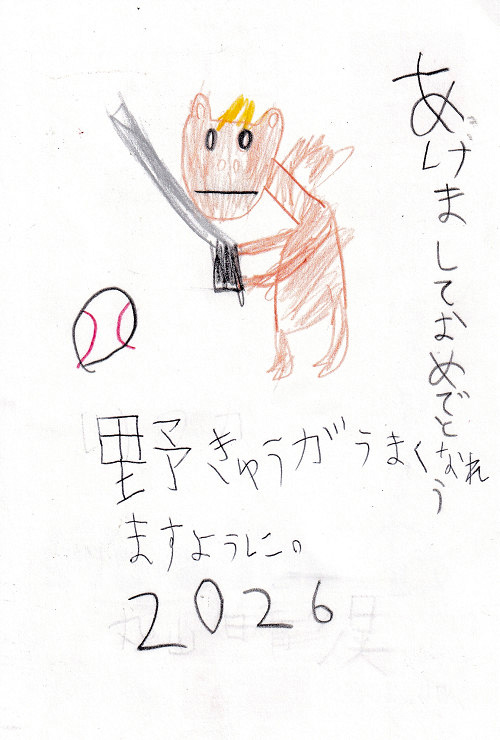 あけましておめでとう
野きゅうがうまくなれ
ますように。
2026